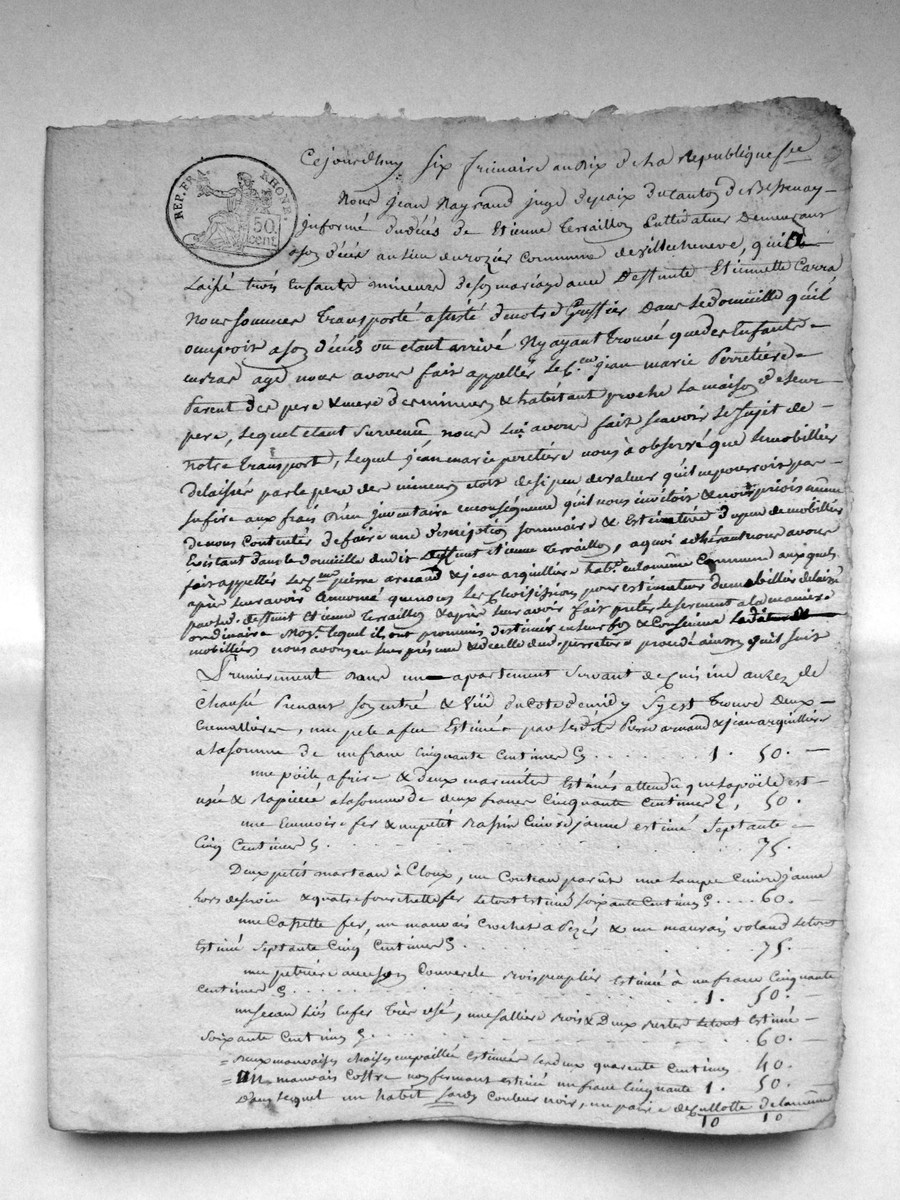 REP. FRA. RHONE.
50 cent
Cejourdhuy six frimaire an dix de la Republique fse
Nous jean Raynaud juge depaix du Canton de Bessenay
jnformé du décés de Etienne terraillon Cultivateur Demeurant
a son décés au lieu du rozier Commune de villecheneve, qui a
Laissé trois Enfants mineurs de son mariage avec Deffunte Etiennette Carra
Nous sommes transporté assisté de notre Greffier Dans le domicille qu'il
occupoit a son décés ou etant arrivé N'y ayant trouvé que des Enfants
en bas age nous avons fait appeller le Cen jean marie Perretiere
Parent des pere & mere des mineurs & habitant proche La maison de leur
pere, lequel etant survenu nous Lui avons fait scavoir le sujet de
notre transport, lequel jean marie peretiere nous à observé que le mobillier
delaissé par le pere des mineurs etoit de si peu de valeur qu'il ne pourroit pas
sufire aux frais d'un jnventaire en conséquence qu'il nous invitoit & nous prioit même
de nous contenter de faire une Description sommaire & Estimative du peu de mobillier
Existant dans le domicille dudit deffunt etienne terraillon, a quoi adhérant nous avons
fait appeller les Cens pierre arnaud & jean arquilliere habt. en la même Commune auxquels
après leur avoir Annoncé que nous les choisissions pour estimateurs du mobillier délaissé
par led. deffunt Etienne terraillon & après leur avoir fait preter le serment a la maniere
ordinaire Moyt. lequel il ont promis d'estimer en leur foy & Consience
mobilliers nous avons en leur présence & de celle dud. perretiere procédé ainsi qu'il suit
Premierement Dans un apartement servant de Cuisine au rez de
Chaussé Prenant son entré & vüe du Coté de midy s'y est trouvé Deux
Cremailleres, une pele a feu Estimé par lesdts. Pierre arnaud & jean arquilliere
a la somme de un franc Cinquante Centimes Cy . . . . 1. 50. —
une pöile a frire & deux marmites Estimés attendu que la pöile est
usée & rapiécée a la somme de deux francs Cinquante Centimes 2, 50. —
une fer & un petit Bassin Cuivre jaune estimé septante
Cinq Centimes Cy . . . . . . 75. —
Deux petit marteau à Cloux, un Couteau une Lampe Cuivre jaune
hors de service & quatre fourchette fer Le tout Estimé soixante Centimes Cy . . . 60. —
une Cassette fer, un mauvais Crochet a Pezer & un mauvais voland Le tout
Estimé septante Cinq Centimes Cy . . . . . 75. —
une petriere avec son Couvercle Bois peuplier Estimée à un franc Cinquante
Centimes Cy . . . . . . 1. 50. —
un seau Liés en fer très usé, une sallière Bois & Deux Le tout Estimé
soixante Centimes Cy . . . . . . 60. —
= Deux mauvaises chaises empaillée Estimées les deux quarante Centimes 40. —
= Un mauvais Coffre non fermant estimé un franc Cinquante 1. 50. —
Dans lequel un habit Couleur noir, une paire de Cullotte de la même
10 10